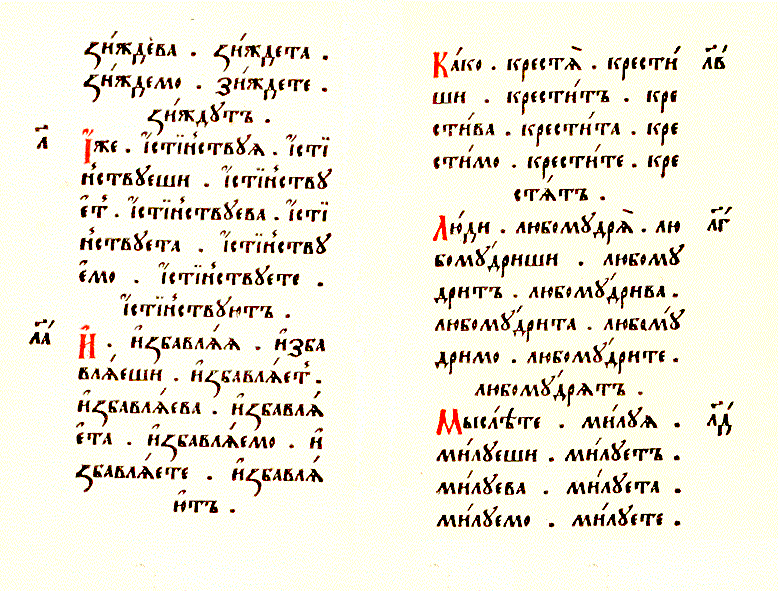 зи́ждева . зи́ждета .
зи́ждемо . зи́ждете .
зи́ждꙋтъ .
л҃ І҆́же . і҆́стїнствꙋѧ . і҆́стї
нствꙋеши . і҆́стїнствꙋ
е҆т . і҆́стїнствꙋева . і҆́стї
нствꙋета . і҆́стїнствꙋ
е҆мо . і҆́стїнствꙋете .
і҆́стїнствꙋютъ .
л҃а И҆ . и҆збавлѧ́ѧ . и҆зба
влѧ́еши . и҆збавлѧ́ет .
и҆збавлѧ́ева . и҆збавлѧ́
е҆та . и҆збавлѧ́емо . и҆
збавлѧ́ете . и҆збавлѧ́
ю҆тъ .
Ка́ко . крестѧ̀ . крести́ л҃в
ши . крести́тъ . кре
сти́ва . крести́та . кре
сти́мо . крести́те . кре
стѧ́тъ .
Лю́ди . любомꙋдрѧ̀ . лю л҃г
бомꙋ́дриши . любомꙋ́
дритъ . любомꙋ́дрива .
любомꙋ́дрита . любомꙋ́
дримо . любомꙋ́дрите .
любомꙋ́дрѧтъ .
Мыслѣ́те . ми́лꙋѧ . л҃д
ми́лꙋеши . ми́лꙋетъ .
ми́лꙋева . ми́лꙋета .
ми́лꙋемо . ми́лꙋете .